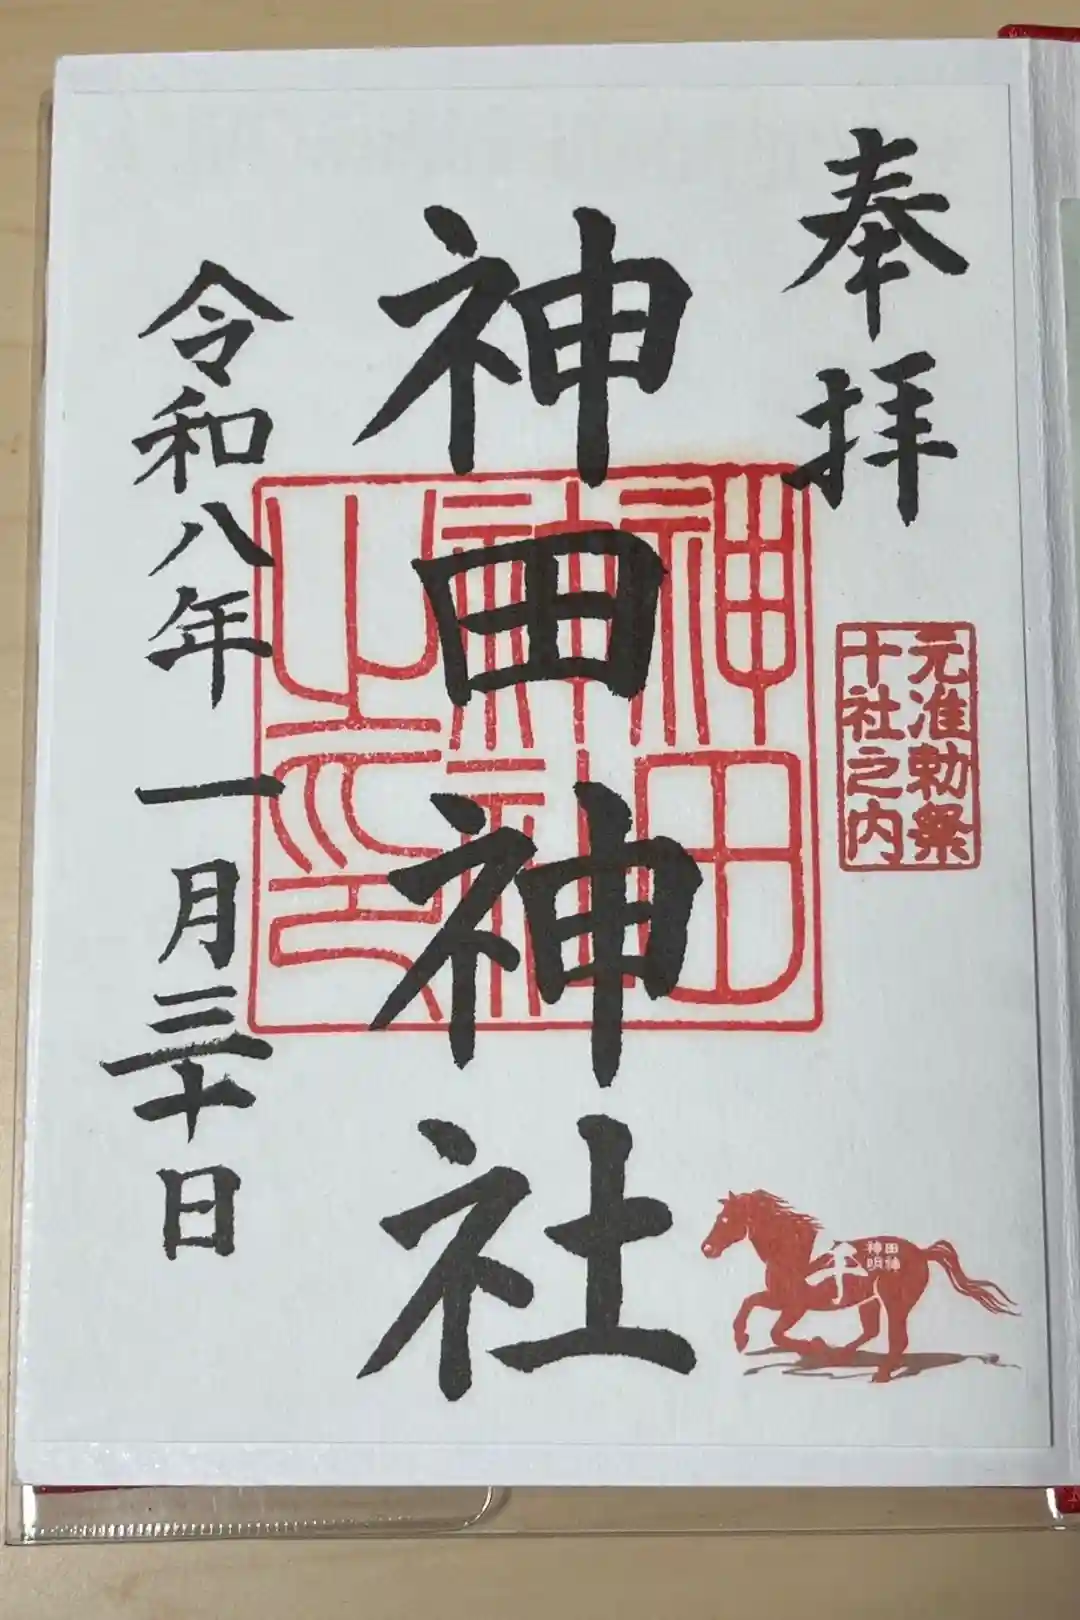 奉拝
元准勅祭
十社之内
神田神社
神田
神社
之印
午
田神
神明
令和八年 一月三十日